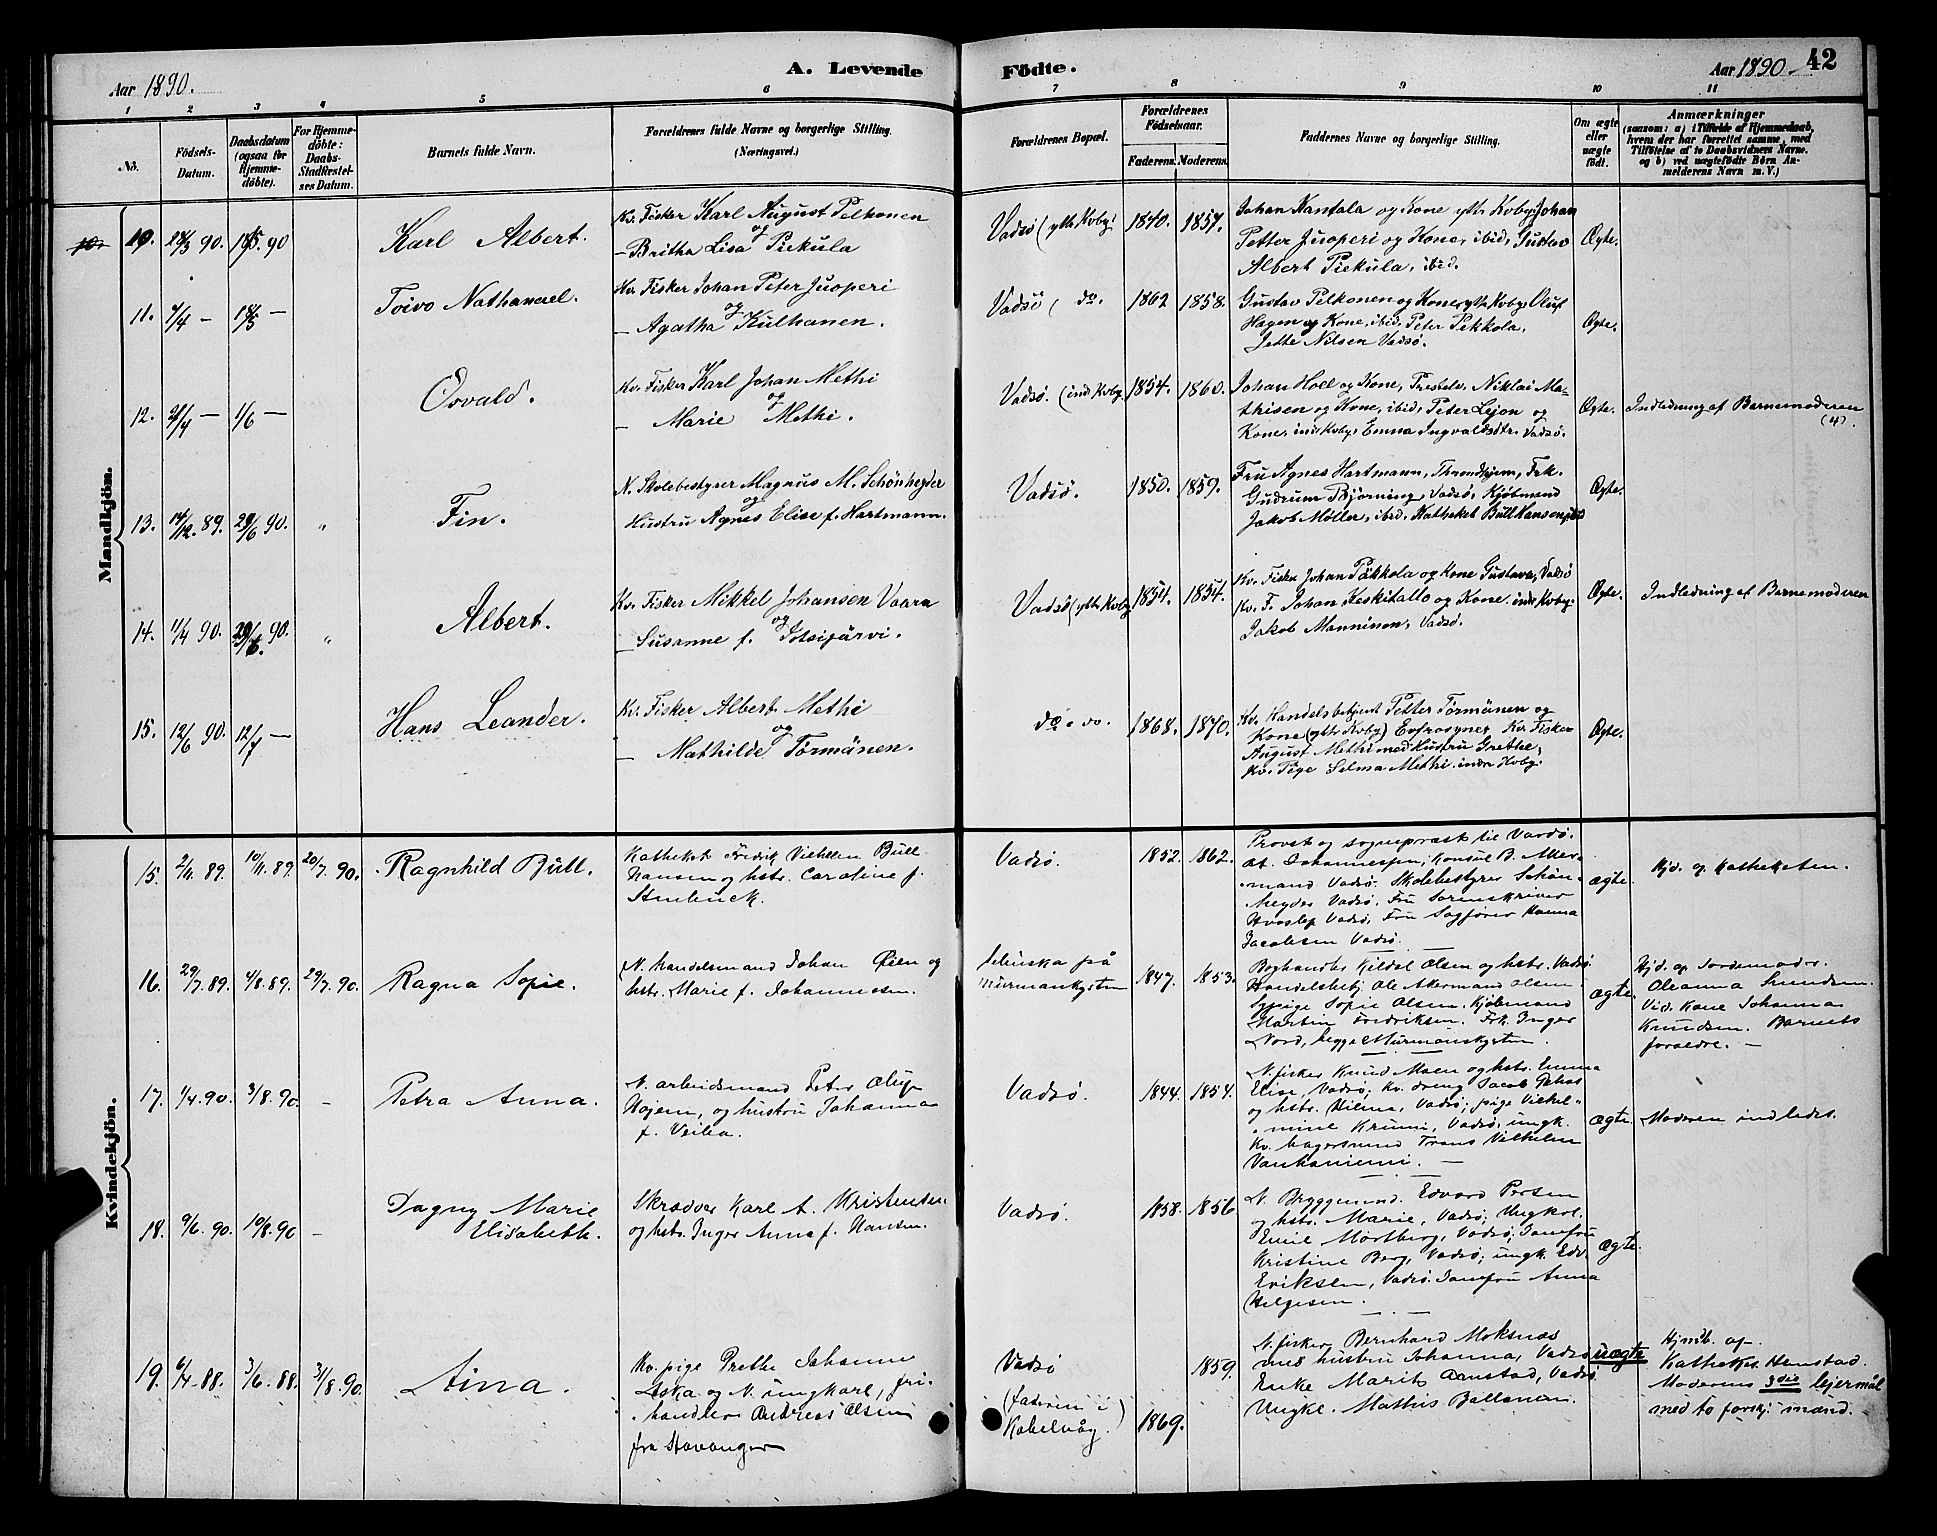 A. Levende Födte.
Aar 1890.
Aar 1890. 42
1 2 3 4 5 6 7 8 9 10 11
No.
Fødsels-Datum.
Daabsdatum (ogsaa for Hjemmedöbte).
For Hjemmedöbte: Daabs-Stadfæstelses Datum.
Barnets fulde Navn.
Forældrenes fulde Navne og borgerlige Stilling. (Næringsvei.)
Forældrenes Bopæl.
Forældrenes Födselsaar.
Faderens. Moderens.
Faddernes Navne og borgerlige Stilling.
Om ægte eller uægte født.
Anmærkninger
(saasom: a) i Tilfælde af Hjemmedaab, hvem der har forrettet samme, med Tilföielse af to Daabsvidners Navne. og b) ved uægtefödte Börn Anmelderens Navn m. V.)
Mandkjön.
10. 28/3 90. 18/5 90 Karl Albert.
Kv. Fisker Karl August Pelkonen
og
— Britha Lisa Piekula
Vadsö (ytre Kvby) 1840. 1857.
Johan Kantala og Kone ytre Kvby, Johan
Petter Juoperi og Kone, ibid, Gustav
Albert Piekula, ibid.
Ægte.
11. 7/4 — 18/5 — Toivo Nathanael.
Kv. Fisker Johan Peter Juoperi
og
— Agatha Kulhanen.
Vadsö ( do. 1862 1858.
Gustav Pelkonen og Kone ytre Kvby, Oluf
Hagen og Kone, ibid, Peter Pekkola,
Jette Nilsen Vadsø.
Ægte.
12. 21/4 — 1/6 — Osvald.
Kv. Fisker Karl Johan Methi
og
— Marie Methi.
Vadsö. (indre Kvby. 1854. 1860.
Johan Holl og Kone, Prestelv. Niklai Ma-
thisen og Kone, ibid, Peter Lejon og
Kone, indre Kvby, Emma Ingvaldsdtr. Vadsø.
Ægte. Indledning af Barnemoderen
(4).
13. 14/12. 89. 29/6 90. " Fin.
N. Skolebestyrer Magnus M. Schönheyder
og
Hustru Agnes Elise f. Hartmann.
Vadsö. 1850. 1859.
Fru Agnes Hartmann, Throndhjem, Frk.
Gudrun Bjørning, Vadsø, Kjøbmand
Jakob Møller, ibid, Katheket Bull Hansen, ibid
Ægte.
14. 11/4 90. 29/6 90. " Albert.
Kv. Fisker Mikkel Johansen Vaara
og
— Susanne f. Itsijärvi.
Vadsö (ytre Kvby 1854. 1854.
Kv. Fisker Johan Päkkola og Kone Gustava, Vadsø
Kv. F. Johan Keskitallo og Kone indre Kvby.
Jakob Manninen, Vadsø.
Ægte. Indledning af Barnemoderen
15. 12/6 90. 12/7 — Hans Leander.
Kv. Fisker Albert Methi
og
— Mathilde Törmänen.
do. do. 1868. 1870.
Kv. Handelsbetjent Petter Törmänen og
Kone (ytre Kvby) Eufrosyner Kv. Fisker
August Methi med Hustru Grethe,
Kv. Pige Selma Methi indre Kvby.
Ægte.
Kvindekjön.
15. 2/11. 89. 10/11 89. 20/7 90. Ragnhild Bull.
Katheket Fredrik Vilhelm Bull
Hansen og hstr. Caroline f.
Steenbuck.
Vadsö. 1852. 1862.
Provst og sogneprest til Vardø.
Johannessen; konsul B. Aker-
mand Vadsö. Skolebestyrer Schön-
heyder Vadsö, Fru Sorenskriver
Vadsö, Fru Sagfører Hanna
Jacobsen Vadsö.
ægte. Hjd. af Katheketen.
16. 29/7 89. 4/8. 89. 29/7. 90. Ragna Sofie.
N. handelsmand Johan Øien og
hstr. Marie f. Johannessen.
på
Murmankysten 1847. 1853.
Boghandler Kildal Olsen og hstr. Vadsö.
Handelsbetj. Ole Akermand Olsen.
Sypige Sofie Olsen. Kjøbmand
Martin Fredriksen. Frk. Inger
Nord, begge Murmanskysten.
ægte. Hjd. af Jordemoder
Oleanna
Vid. Kone Johanna
Knudsen. Barnets
foreldre. —
17. 1/4. 90. 3/8. 90. - Petra Anna.
N. arbeidsmand Peter Oluf
Højem, og hustru Johanna
f. Veiba.
Vadsö. 1844. 1854.
N. fisker Knud Moen og hstr. Emma
Elise, Vadsö; kv. dreng Jacob
og hstr. Hilma, Vadsö; pige Vilhel-
mine Krunni, Vadsö, ungk.
Kv. bagersvend Frans Vilhelm
Vanhaniemi. —
ægte. Moderen indledes.
18. 9/6. 90. 10/8. 90 - Dagny Marie
Elisabeth.
Skræder Karl A. Kristensen
og hstr. Inger Anna f. Hansen.
Vadsö. 1858. 1856
N. Bryggemand Edvard Persen
og hstr. Marie, Vadsö; Ungkar.
Emil Mortberg, Vadsö, Jomfru
Kristine Berg, Vadsö; ungk. Edv.
Eriksen, Vadsö. Jomfru Anna
Helgesen.
ægte.
19. 6/4. 88. 3/6. 88. 31/8. 90. Aina.
Kv. pige Prethe Johanne
Aska og N. ungkarl, fri-
handler Andreas Olsen
fra Stavanger
Vadsö
(faderen i
Kabelvåg.) 1869. 1859.
N. fisker Bernhard Moksnæs
med hustru Johanna, Vadsö
Enke Marit Aanstad, Vadsö
Ungk. Mathis Ballanen.
uægte Hjmdb. af
Kathekt. Hemstad.
Moderens 3die lejermål
med to forskj. mænd.